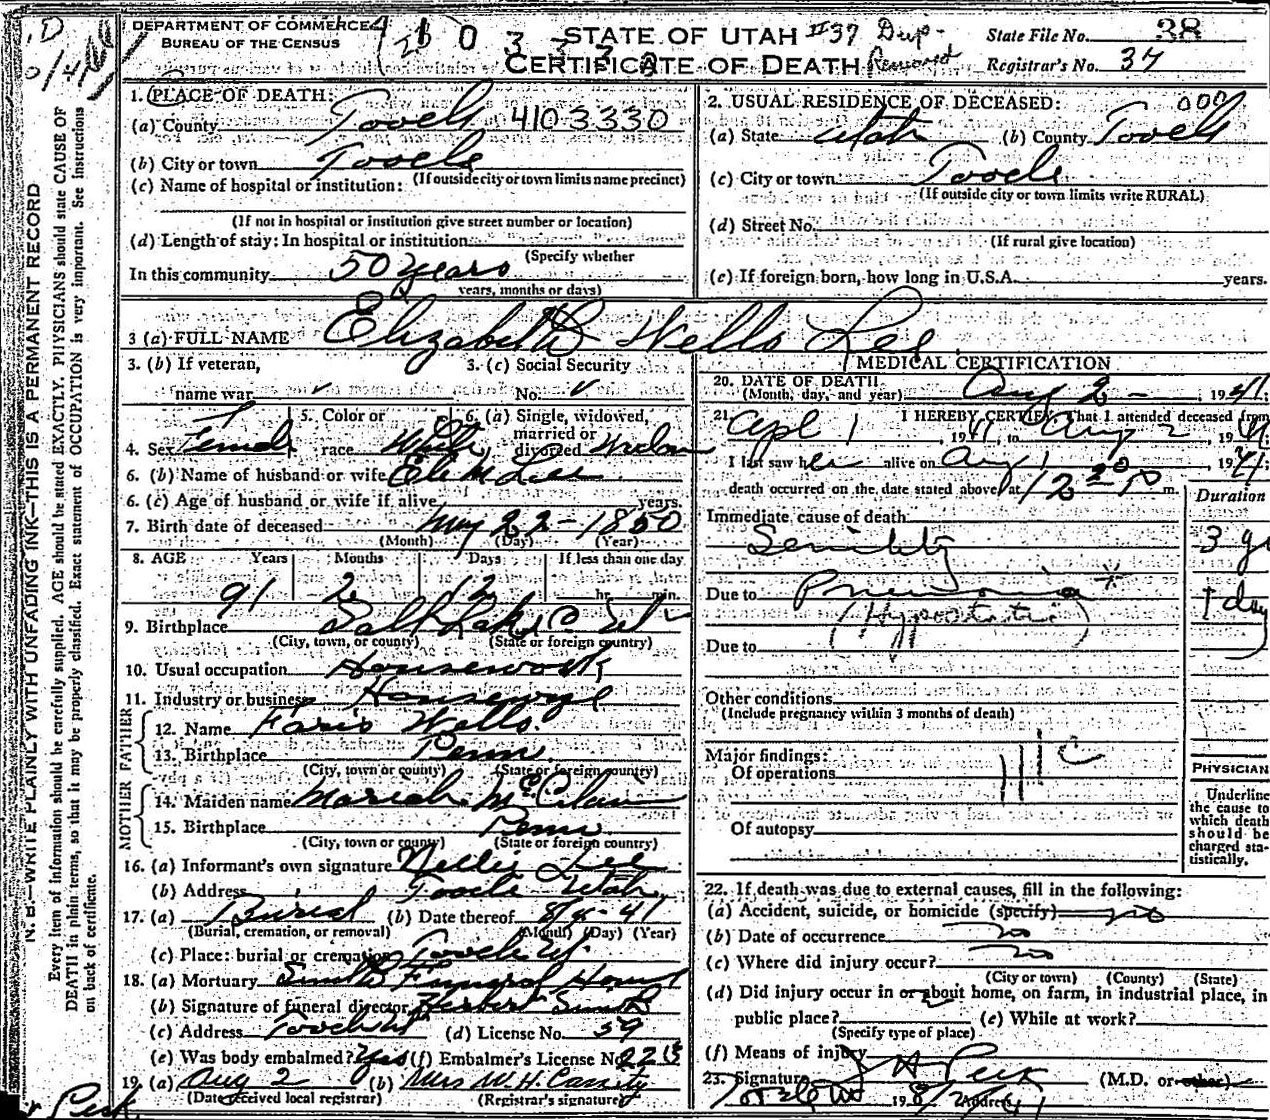 DEPARTMENT OF COMMERCE
BUREAU OF THE CENSUS
STATE OF UTAH
CERTIFICATE OF DEATH
II 37 Dup-
Removed
State File No. 38
Registrar's No. 37
N. B.—WRITE PLAINLY WITH UNFADING INK—THIS IS A PERMANENT RECORD
Every item of information should be carefully supplied. AGE should be stated EXACTLY. PHYSICIANS should state CAUSE OF
DEATH in plain terms, so that it may be properly classified. Exact statement of OCCUPATION is very important. See instructions
on back of certificate.
1. PLACE OF DEATH:
(a) County Tooele 4103330
(b) City or town Tooele
(If outside city or town limits name precinct)
(c) Name of hospital or institution:
(If not in hospital or institution give street number or location)
(d) Length of stay: In hospital or institution
(Specify whether
In this community 50 years
years, months or days)
2. USUAL RESIDENCE OF DECEASED: 000
(a) State Utah (b) County Tooele
(c) City or town Tooele
(If outside city or town limits write RURAL)
(d) Street No.
(If rural give location)
(e) If foreign born, how long in U.S.A. years.
3 (a) FULL NAME Elizabeth Wells Lee
3. (b) If veteran,
name war
3. (c) Social Security
No.
4. Sex Female
5. Color or
race White
6. (a) Single, widowed,
married or
divorced Widow
6. (b) Name of husband or wife Eli M Lee
6. (c) Age of husband or wife if alive years
7. Birth date of deceased May 22-1850
(Month) (Day) (Year)
8. AGE Years Months Days If less than one day
91 2 12 hr. min.
9. Birthplace Salt Lake C
(City, town, or county) (State or foreign country)
10. Usual occupation Housework
11. Industry or business Housewife
FATHER
12. Name Faris Wells
13. Birthplace Penn
(City, town or county) (State or foreign country)
MOTHER
14. Maiden name Mariah
15. Birthplace Penn
(City, town or county) (State or foreign country)
16. (a) Informant's own signature Nellie Lee
(b) Address Tooele Utah
17. (a) Burial (b) Date thereof 8/4-41
(Burial, cremation, or removal) (Month) (Day) (Year)
(c) Place: burial or cremation Tooele Ut
18. (a) Mortuary Smith Funeral Home
(b) Signature of funeral director Herbert Smith
(c) Address Tooele Ut (d) License No. 59
(e) Was body embalmed? Yes (f) Embalmer's License No 225
19. (a) Aug 2 (b) Mrs W. H. Cassity
(Date received local registrar) (Registrar's signature)
MEDICAL CERTIFICATION
20. DATE OF DEATH Aug 2 - , 1941;
(Month, day, and year)
21. I HEREBY CERTIFY, That I attended deceased from
Apl 1, 1941, to Aug 2, 1941;
I last saw her alive on Aug 1, 1941;
death occurred on the date stated above, at 12 20 P m.
Duration
Immediate cause of death
Senility 3 y
Due to Pneumonia * 1 day
(Hypostatic)
Due to
Other conditions
(Include pregnancy within 3 months of death)
Major findings:
Of operations
Of autopsy
PHYSICIAN
Underline
the cause to
which death
should be
charged sta-
tistically.
22. If death was due to external causes, fill in the following:
(a) Accident, suicide, or homicide (specify) no
(b) Date of occurrence no
(c) Where did injury occur? no
(City or town) (County) (State)
(d) Did injury occur in or about home, on farm, in industrial place, in
public place? (e) While at work?
(Specify type of place)
(f) Means of injury
23. Signature J H Peck (M.D. or other)
Peck